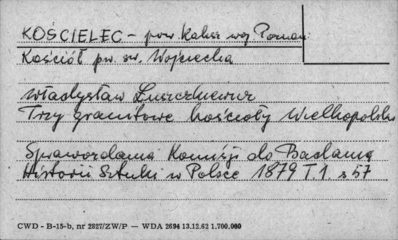 KOŚCIELEC - pow. Kalisz woj Poznań
Kościół pw. św. Wojciecha
Władysław Łuszczkiewicz
Trzy granitowe kościoły Wielkopolski
Sprawozdania Komisji do Badania
Historii Sztuki w Polsce 1879 T.1 s 57
CWD - B-15-b, nr 2827/ZW/P — WDA 2694 13.12.62 1.700.000